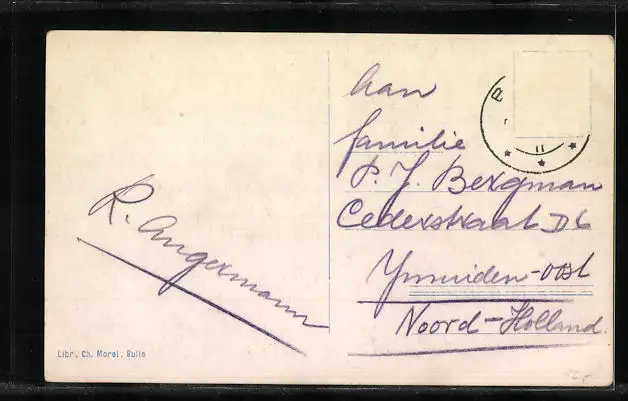 Aan
familie
P. J. Bergman
Cederstraat D6
Ymuiden-oost
Noord-Holland.
R. Angermann
Libr. Ch. Morel. Bulle